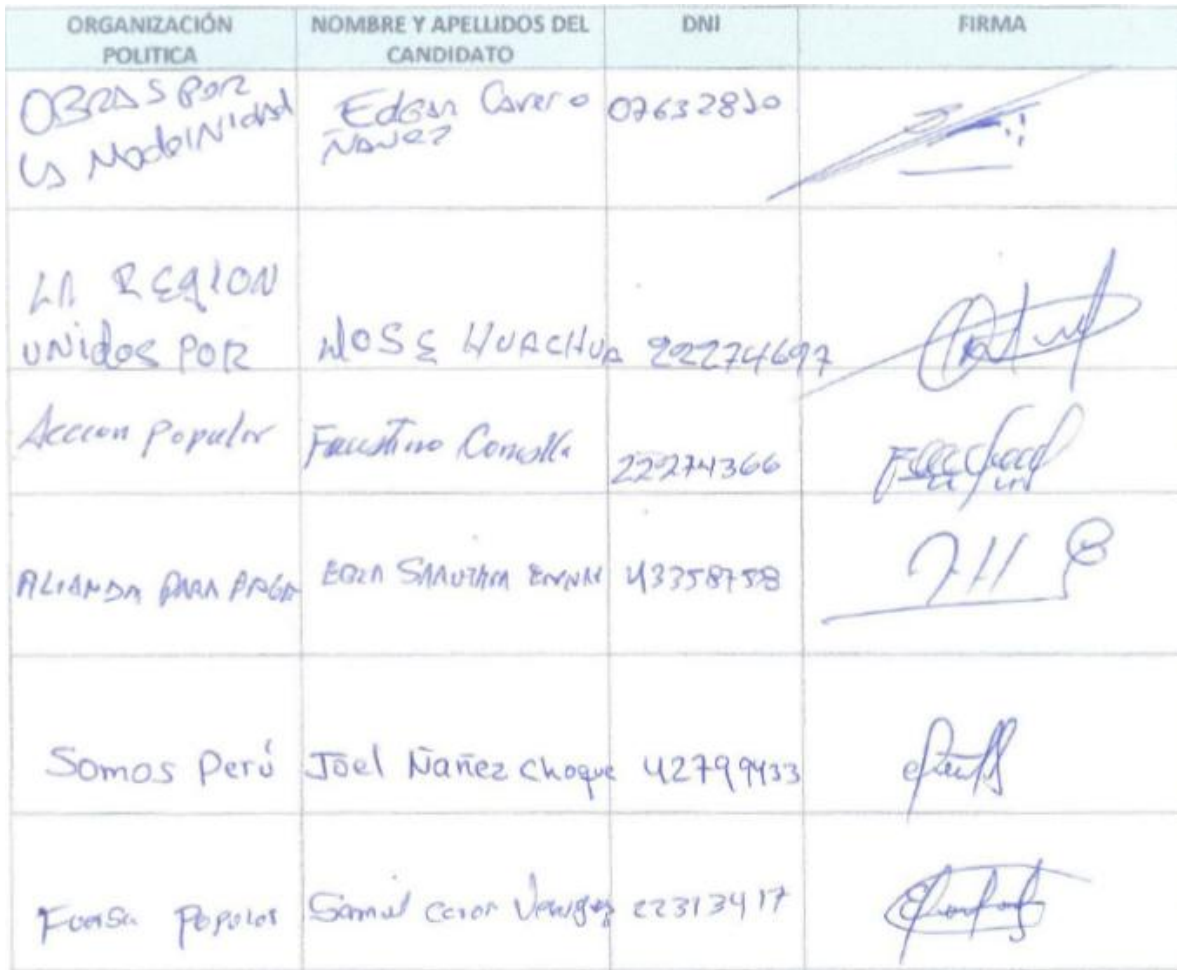 ORGANIZACIÓN POLITICA
NOMBRE Y APELLIDOS DEL CANDIDATO
DNI
FIRMA
OBRAS POR
LA ModeRNidad
Edgar Cavero
Ñañez
LA REGION
UNidos POR
JOSE HUACHUA
22274697
Accion Popular
Faustino
22274366
PARA
43358758
Somos Perú
Joel Ñañez Choque
42799433
Fuersa Popular
Samuel
22313417